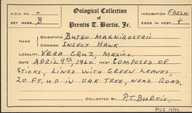 Oological Collection
of
Prentis T. Burtis, Jr.
A.O.U. No. -
SET MARK 3
INCUBATION FRESH
EGGS IN SET 1
SPECIES BUTEO MAGNIROSTRIS
COMMON NAME INSECT HAWK
LOCALITY VERA CRUZ, MEXICO
DATE APRIL 9TH, 1962 NEST COMPOSED OF
STICKS, LINED WITH GREEN LEAVES,
20 FT. UP IN OAK TREE, NEAR ROAD.
COLLECTED BY P.T. BURTIS